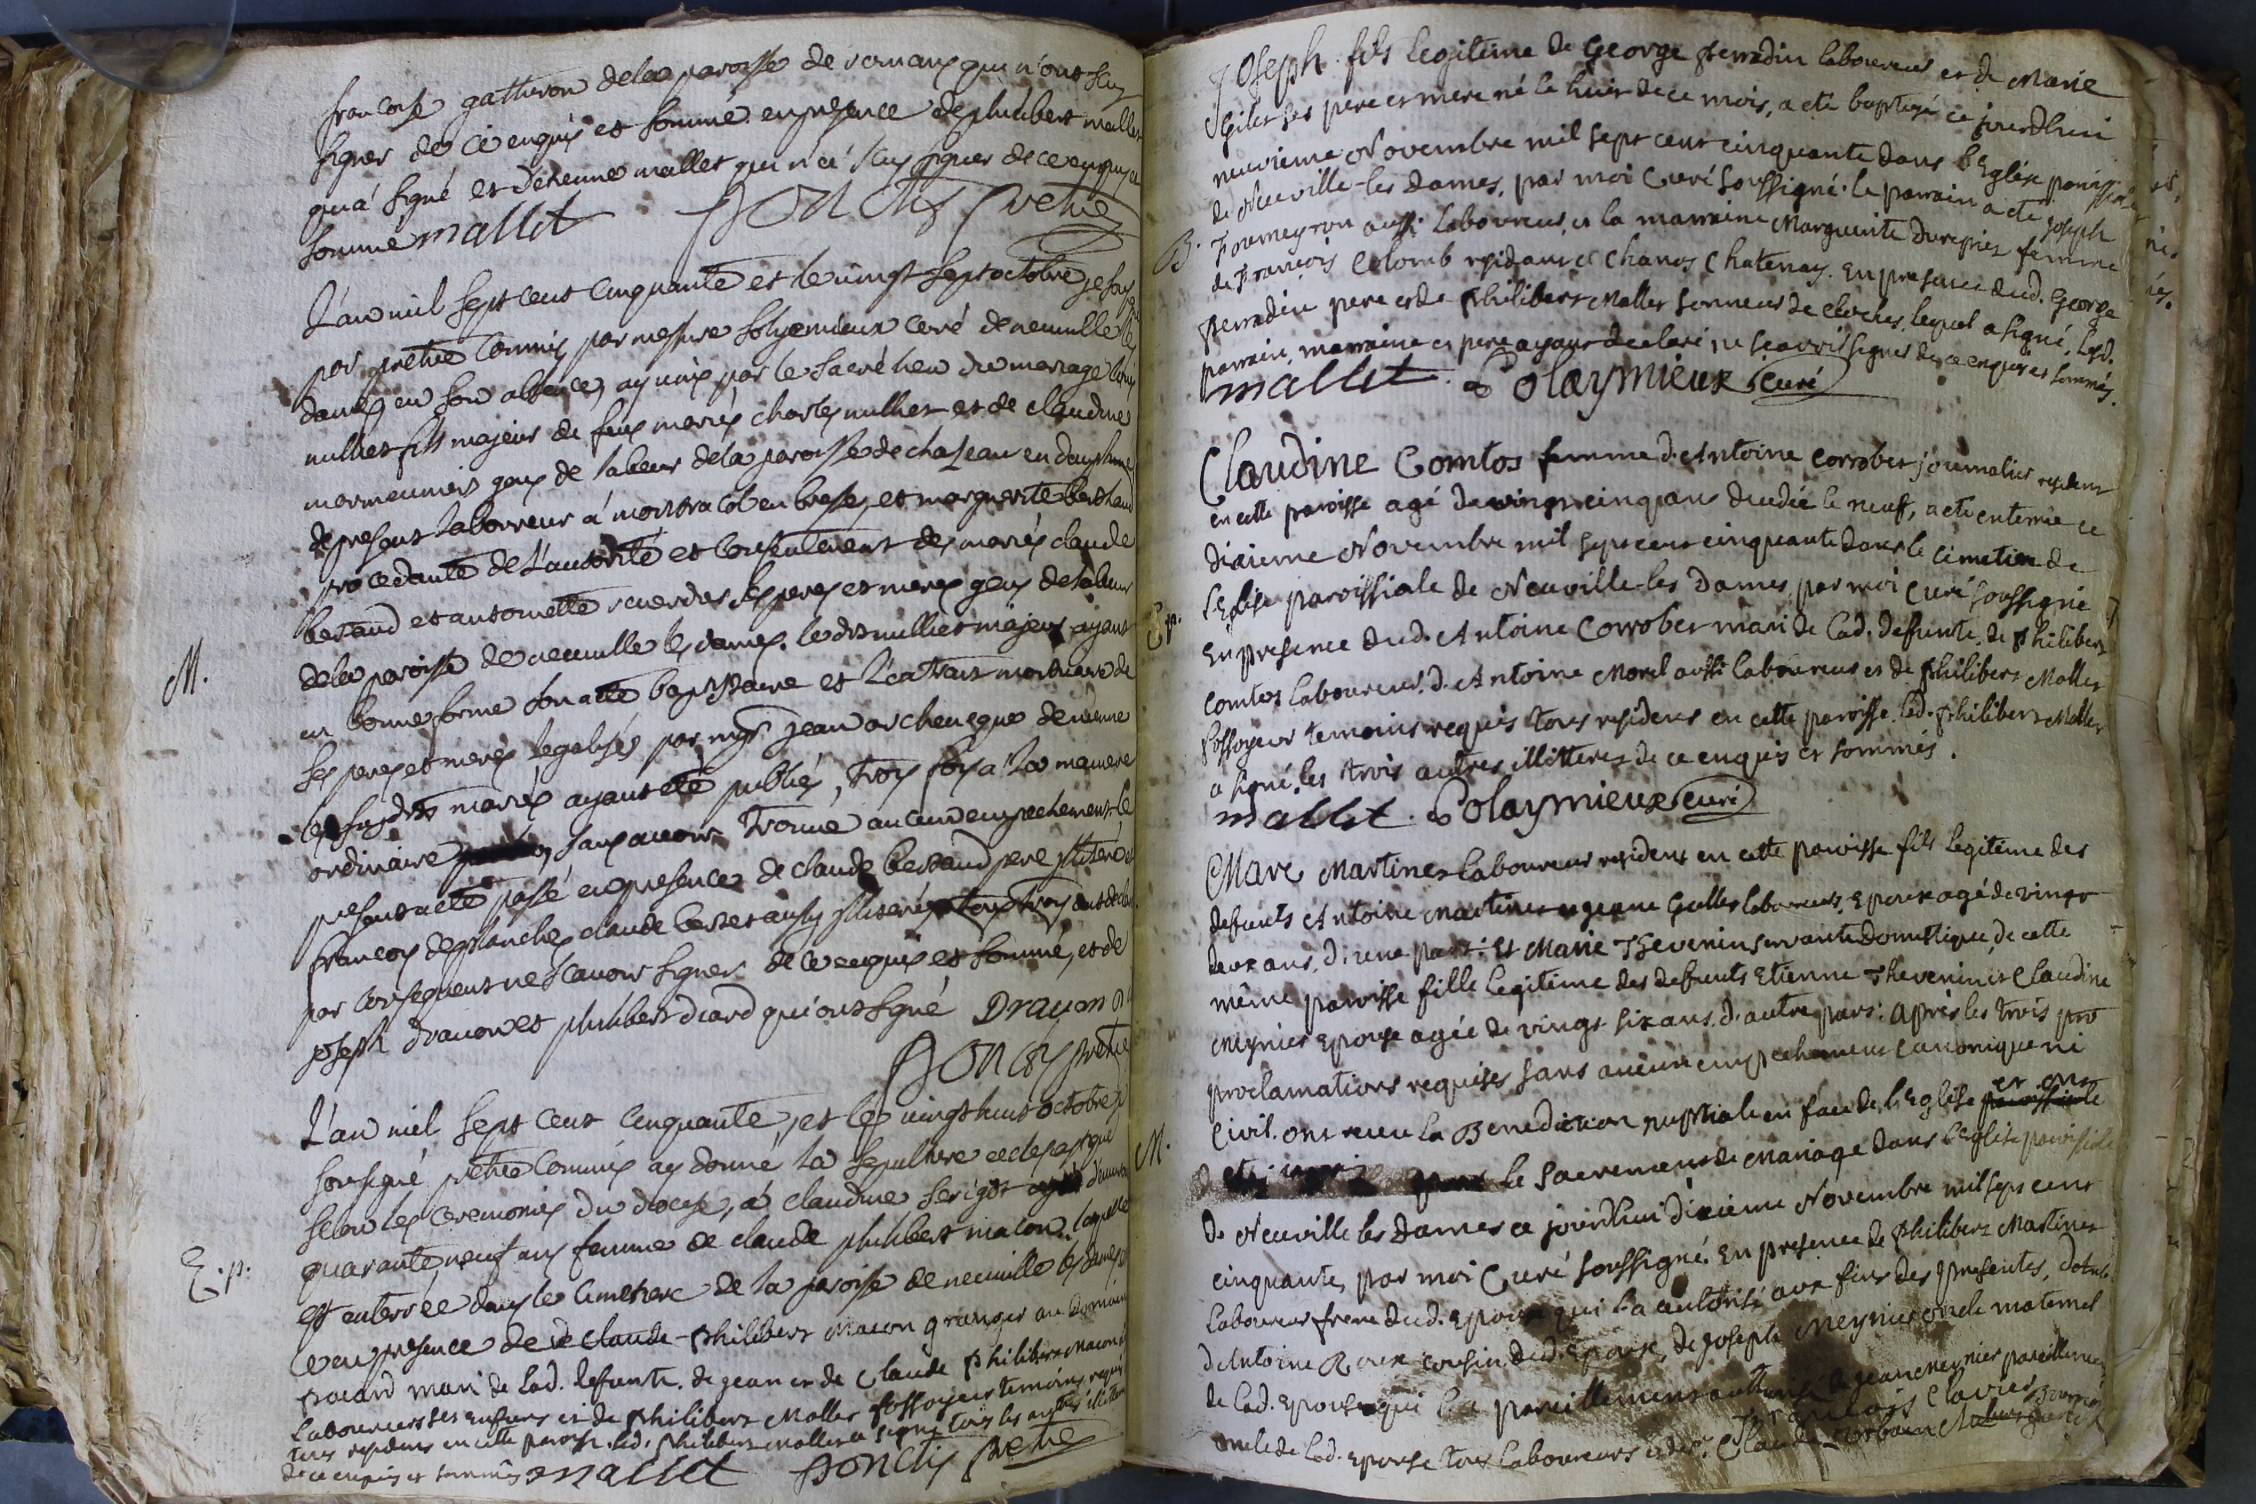 francoise gatheron de la paroisse de romans qui n'ont scu
signer de ce enquis et sommé en presence de philibert mallet
qui a signé et d'etienne mallet qui n'a scu signer de ce enquis et
sommé mallet poncetis prêtre
L'an mil sept cent cinquante et le vingt sept octobre je sousigné
prêtre commis par messire solyemieux curé de neuville les
dames en son absence, ay unis par le sacré lien du mariage
nulliet fils majeur de feux mariés charles nulliet et de claudine
mormeunier gens de labeur de la paroisse de chaseau en dauphiné
de present laboureur á montracol en bresse, et marguerite bertand
procedante de l'autorité et consentement des mariés claude
bertand et antoinette ses peres et meres gens de labeur
de la paroisse de neuville les dames. le dit nulliet majeur ayant
en bonne forme son acte baptistaire et l'extrait mortuaire de
ses peres et meres legalisés par mgr jean archeveque de vienne
les susdits mariés ayant eté publiés, trois fois a la maniere
ordinaire sans avoir trouvé aucun empechement. le
present acte passé en presence de claude bertand pere illiteré et
francois desplanches claude bertet aussy illiterés tous trois ont declaré
par consequent ne scavoir signer de ce enquis et sommé, et de
joseph dravon et philibert diard qui ont signé Dravon
poncetis prêtre
M.
L'an mil sept cent cinquante, et le vingt huit octobre je
sousigné prêtre commis ay donné la sepulture ecclesiastique
selon les ceremonies du diocese, á claudine serigot agée d'environ
quarante neuf ans femme de claude philibert macon laquelle
est enterrée dans le cimetiere de la paroisse de neuville les dames
ce en presence de claude-philibert Macon granger au domaine
mari de lad. defunte. de jean et de Claude philibert Macon
laboureurs ses enfans et de philibert Mallet fossoyeur temoins requis
tous residens en cette paroisse. led. philibert Mallet a signé tous les autres illitteres
de ce enquis et sommés mallet poncetis prêtre
E.p.
Joseph fils legitime de George Perradin laboureur et de Marie
Giles ses pere et mere né le huit de ce mois, a eté baptisé ce jourd'hui
neuvieme Novembre mil sept cent cinquante dans l'Eglise paroissiale
de Neuville-les Dames, par moi Curé soussigné. le parrain a eté joseph
Fourneyron aussi laboureur, et la marraine Marguerite Duresnier femme
de François Colomb residant a Chanos Chatenay. En presence dud. George
Perradin pere et de Philibert Mallet sonneur de cloches, lequel a signé, lesd.
parrain, marraine et pere ayant declaré ne sçavoir signer de ce enquis et sommés.
mallet. Polaymieux curé
B.
Claudine Comtos femme d'Antoine Corrober journalier resident
en cette paroisse agé de vingt cinq ans decedée le neuf, a eté enterrée ce
dixieme Novembre mil sept cent cinquante dans le cimetiere de
l'Eglise paroissiale de Neuville-les Dames, par moi Curé soussigné
En presence dud. Antoine Corrober mari de lad. defunte, de Philibert
Comtos laboureur, d'Antoine Morel aussi laboureur et de philibert Mallet
fossoyeur temoins requis tous residens en cette paroisse led. philibert Mallet
a signé, les trois autres illitteres de ce enquis et sommés.
mallet. Polaymieux curé
E.p.
Marc Martinet laboureur resident en cette paroisse fils legitime des
defunts Antoine Martinet et jeanne Gullet laboureurs, Epoux agé de vingt
deux ans, d'une part: Et Marie Thevenin servante domestique de cette
même paroisse fille legitime des defunts Etienne Thevenin et Claudine
Meynier Epouse agée de vingt six ans, d'autre part: après les trois pro
proclamations requises sans aucun empechement canonique ni
civil. ont recu la Benediction nuptiale en face de l'Eglise et ont
le sacrement de Mariage dans l'eglise paroissiale
de Neuville les Dames ce jourd'hui dixieme Novembre mil sept cent
cinquante, par moi Curé soussigné. En presence de philibert Martinet
laboureur frere dud. Epoux qui l'a autorisé aux fins des presentes,
d'Antoine Roux cousin dud. Epoux, de Joseph Meynier oncle maternel
de lad. Epouse qui l'a pareillement autorisé, de jean meynier pareillement
oncle de lad. Epouse tous laboureurs
M.